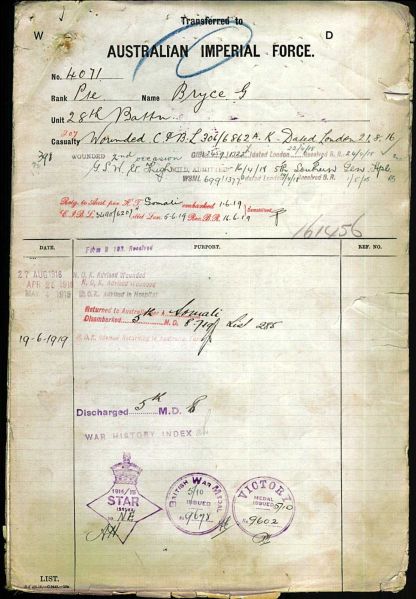 Transferred to
W D
AUSTRALIAN IMPERIAL FORCE.
No. 4071
Rank Pte Name Bryce G
Unit 28th Battn
Casualty Wounded. C.&B.L 306/6862 A.K. Dated London 21.8.16
WOUNDED 2nd occasion dated London Received B.R.
G.S.W. Rt Thigh ADMITTED 16/4/18 5th Southern Gen Hpl.
WSML 699 dated London Received B.R.
Retg. to Aust. per H.T. Somali embarked 1.6.19
dted Lon. 5.6.19 Rec. B.R.
161456
DATE. PURPORT. REF. NO.
Form B 103 Received
27 AUG 1916 N.O.K. Advised Wounded
APR 26 1918 N.O.K. Advised Wounded
MAY 4 1918 N.O.K. Advised in Hospital
Returned to Australia Somali
Disembarked 5th M.D. 8-7-19 List 285
19-6-1919 N.O.K. Advised Returning to Australia
Discharged 5th M.D.
WAR HISTORY INDEX
1914/15
STAR
ISSUED
No NE
AH
BRITISH WAR MEDAL
5/10
ISSUED
No 9678
VICTORY
MEDAL
ISSUED 5/10
No 9602
LIST.